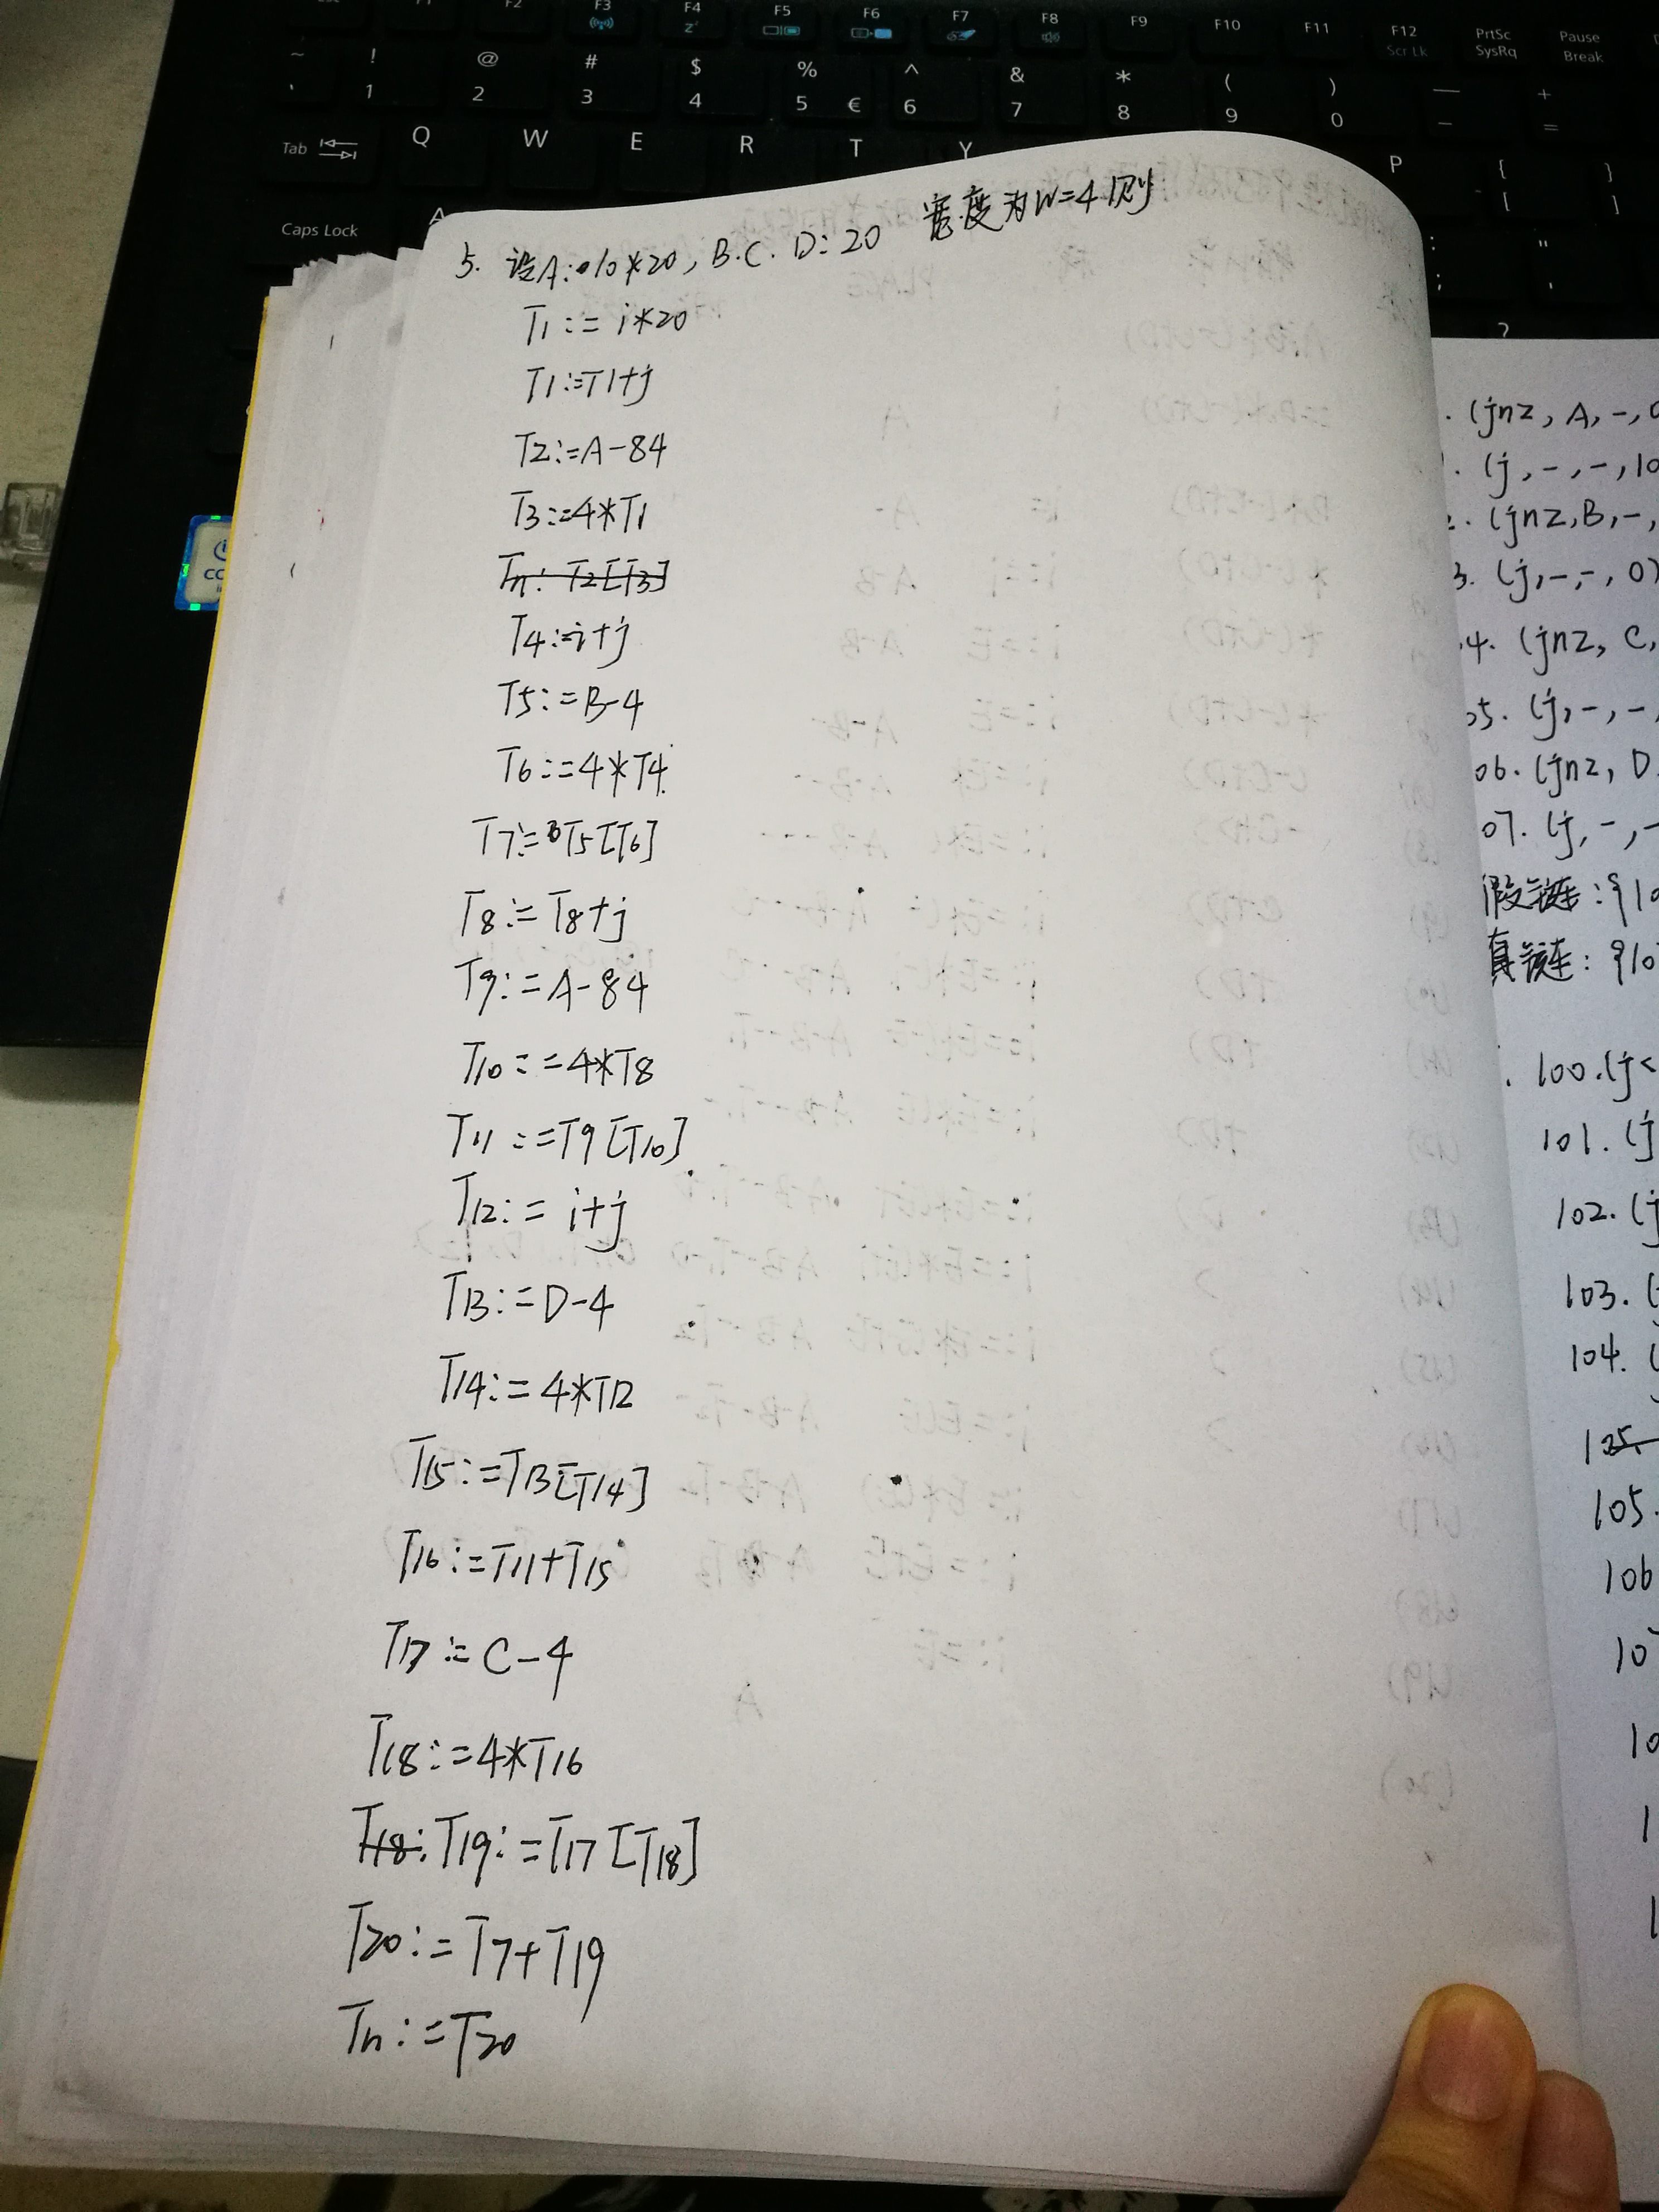 F2 F3 F4 F5 F6 F7 F8 F9 F10 F11 F12 PrtSc Pause
Scr Lk SysRq Break
~ ! @ # $ % ^ & * ( ) — +
` 1 2 3 4 5 € 6 7 8 9 0 - =
Tab Q W E R T Y P { }
[ ]
Caps Lock A : "
; '
?
5. 设A:10*20, B.C. D:20 宽度为W=4 则
T1:=i*20
T1:=T1+j
T2:=A-84
T3:=4*T1
Tn: T2[T3]
T4:=i+j
T5:=B-4
T6:=4*T4
T7:=T5[T6]
T8:=T8+j
T9:=A-84
T10:=4*T8
T11:=T9[T10]
T12:=i+j
T13:=D-4
T14:=4*T12
T15:=T13[T14]
T16:=T11+T15
T17:=C-4
T18:=4*T16
T18: T19:=T17[T18]
T20:=T7+T19
Tn:=T20
. (jnz, A, -, 0
. (j, -, -, 10
. (jnz, B, -,
3. (j, -, -, 0)
4. (jnz, C,
05. (j, -, -,
06. (jnz, D
07. (j, -, -
假链:{10
真链:{10
. 100.(j<
101. (j
102. (j
103. (
104. (
105.
106
10
10
1
1